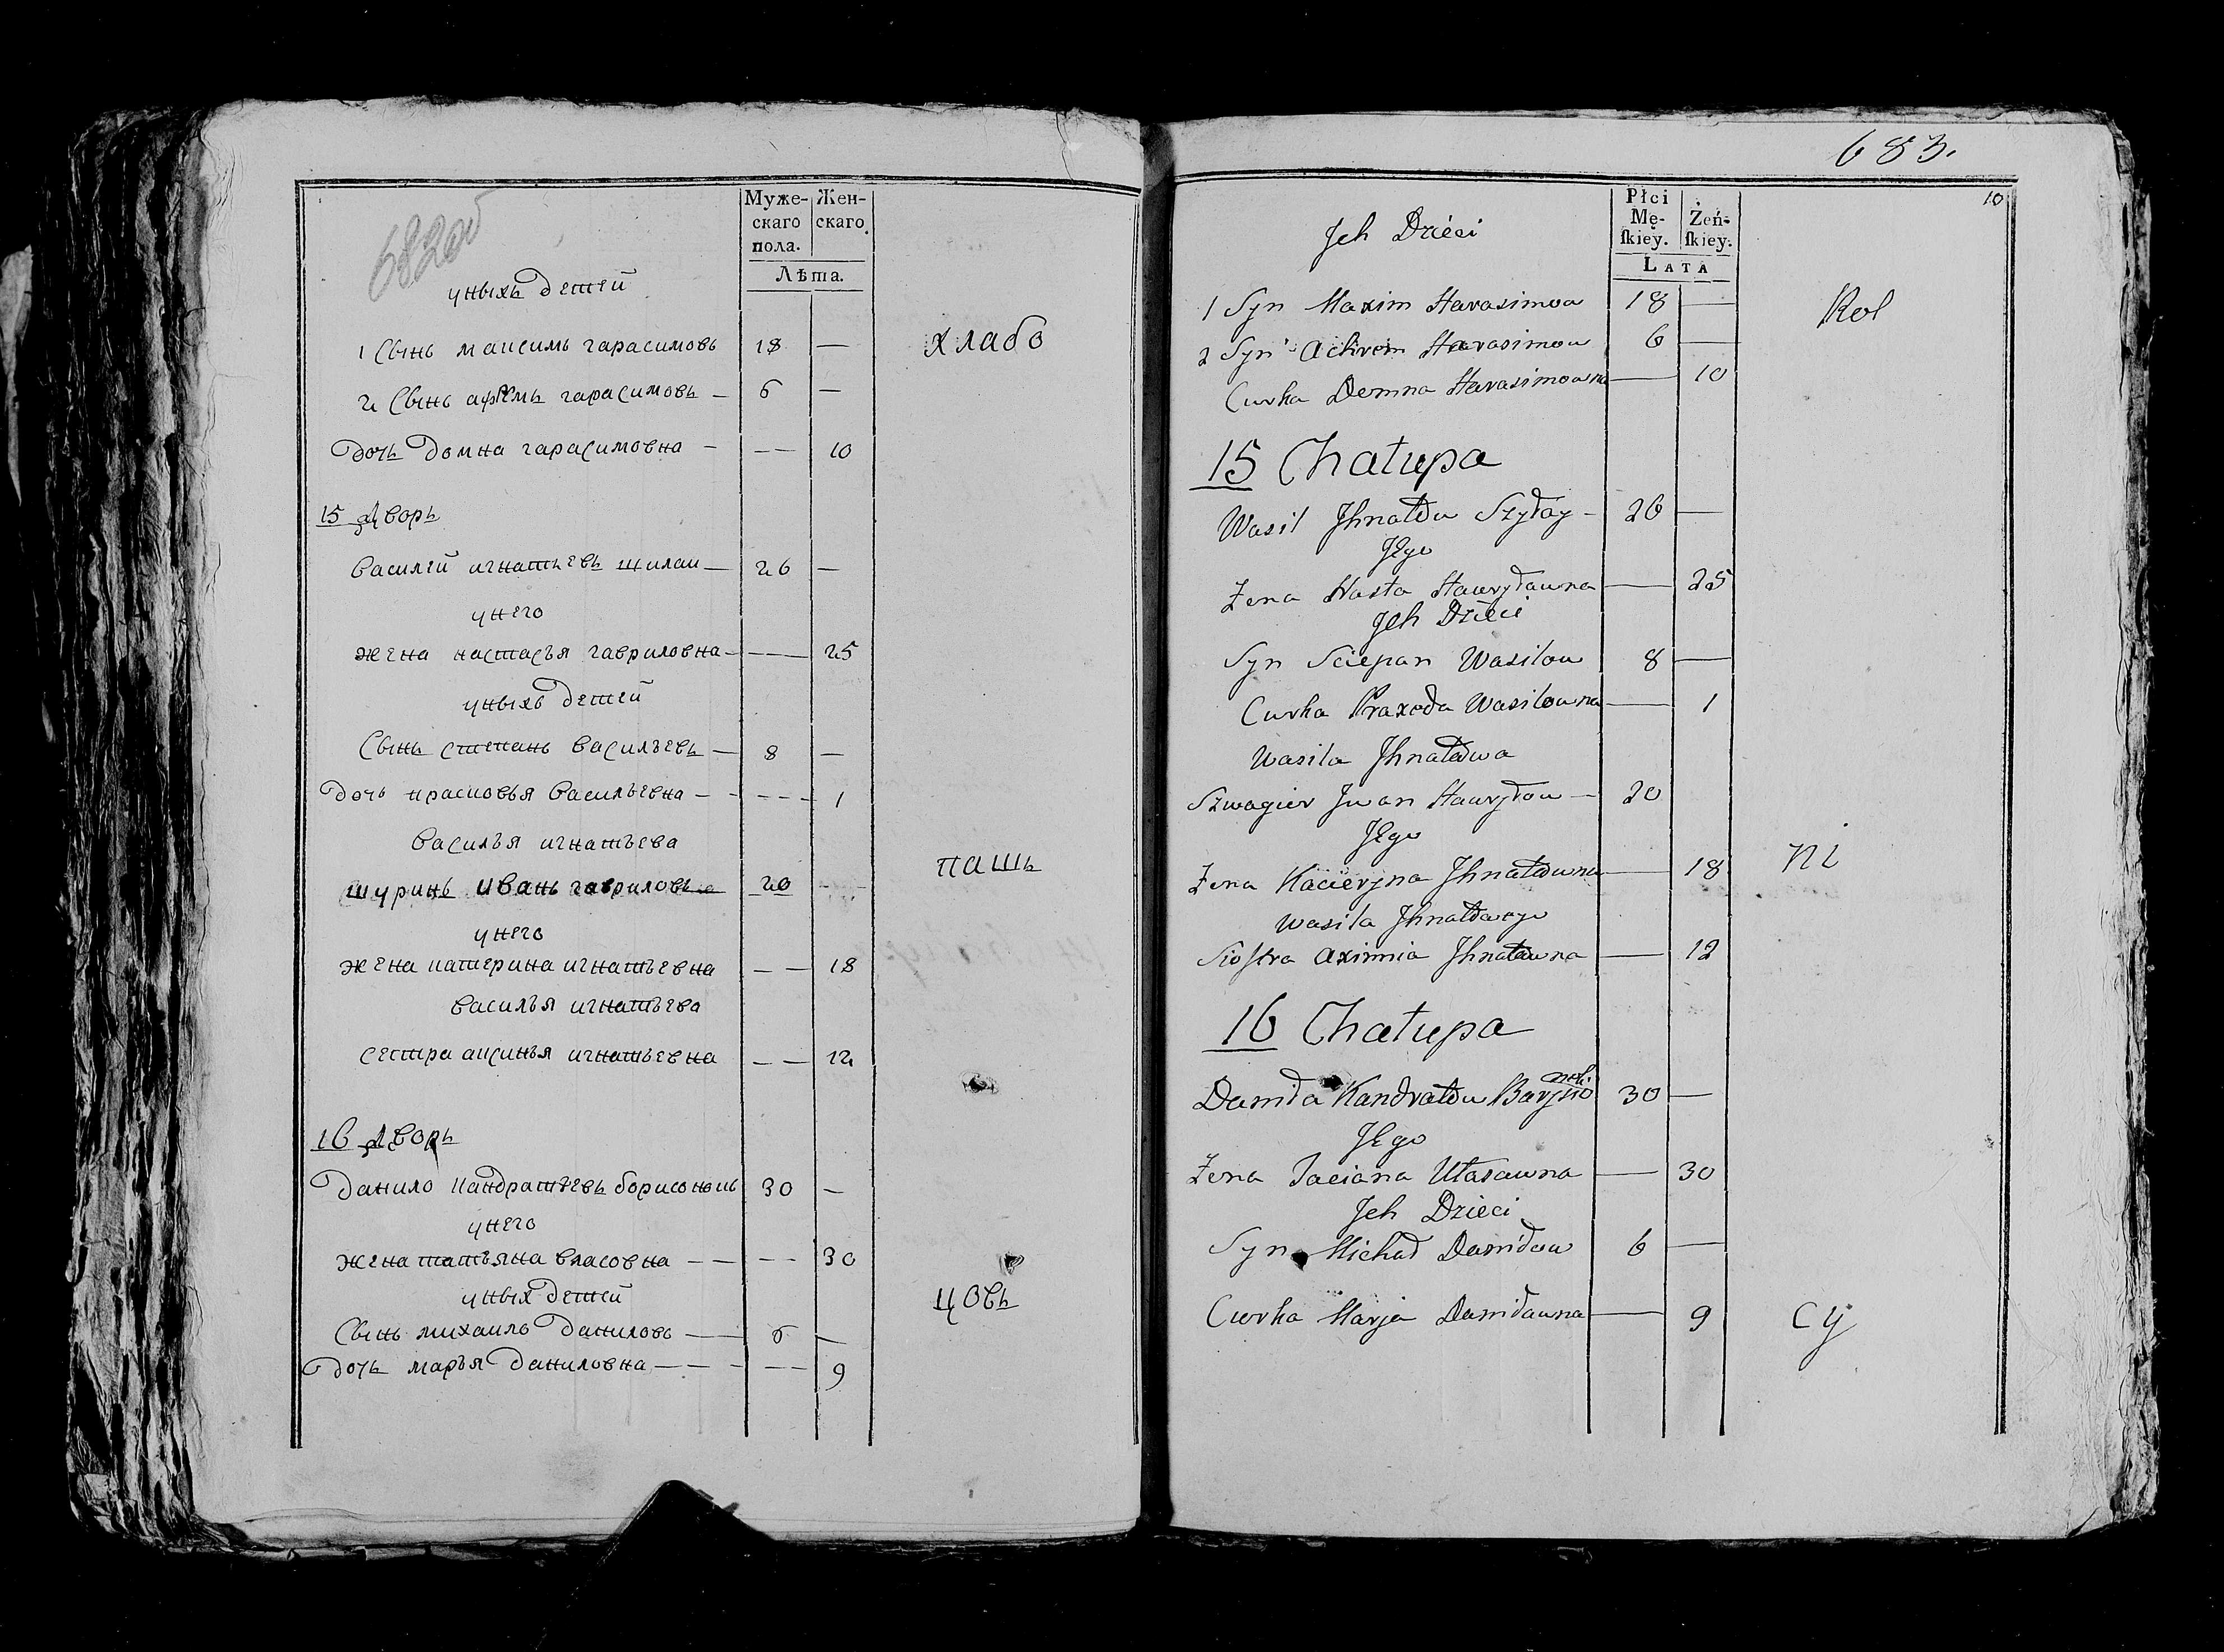 682об
Муже-
скаго
пола.
Жен-
скаго.
Лѣта.
уныхъ детей
1 Сынъ максимъ гарасимовъ 18 —
хлабо
2 Сынъ афремъ гарасимовъ — 6 —
дочь домна гарасимовна — —— 10
15 Дворъ
Василей игнатьевъ шилаи — 26 —
унего
жена настасья гавриловна — —— 25
уныхъ детей
Сынъ степанъ васильевъ — 8 —
дочь прасковья васильевна — - - - - 1
василья игнатьева
пашъ
шуринъ иванъ гавриловъ 20
унего
жена катерина игнатьевна — — 18
василья игнатьева
сестра аксинья игнатьевна — — 12
16 Дворъ
данило кандратьевъ борисонокъ 30 —
унего
жена татьяна власовна — — - - 30
уныхъ детей
цовъ
Сынъ михаилъ даниловъ — 6 —
дочь марья даниловна — — - - - 9
683.
10
Płci
Mę-
skiey.
Żeń-
skiey.
LATA
Jch Dzieci
1 Syn Maxim Harasimow 18 —
Rol
2 Syn Achrem Harasimow 6 —
Curka Demna Harasimowna — 10
15 Chałupa
Wasil Jhnatow Szyłay - 26 —
Jego
Żena Nasta Hawryławna — 25
Jch Dzieci
Syn Sciepan Wasilow 8 —
Curka Praxeda Wasilowna — 1
Wasila Jhnatowa
Szwagier Jwan Hawryłow — 20
Jego
Żena Kacieryna Jhnatowna — 18
ni
Wasila Jhnatowego
Siostra Axinnia Jhnatowna — 12
16 Chałupa
Daniła Kandratow Barysionek 30 —
Jego
Żena Taciana Ułasawna — 30
Jch Dzieci
Syn Michał Daniłow 6 —
Curka Marja Daniławna — 9
cy